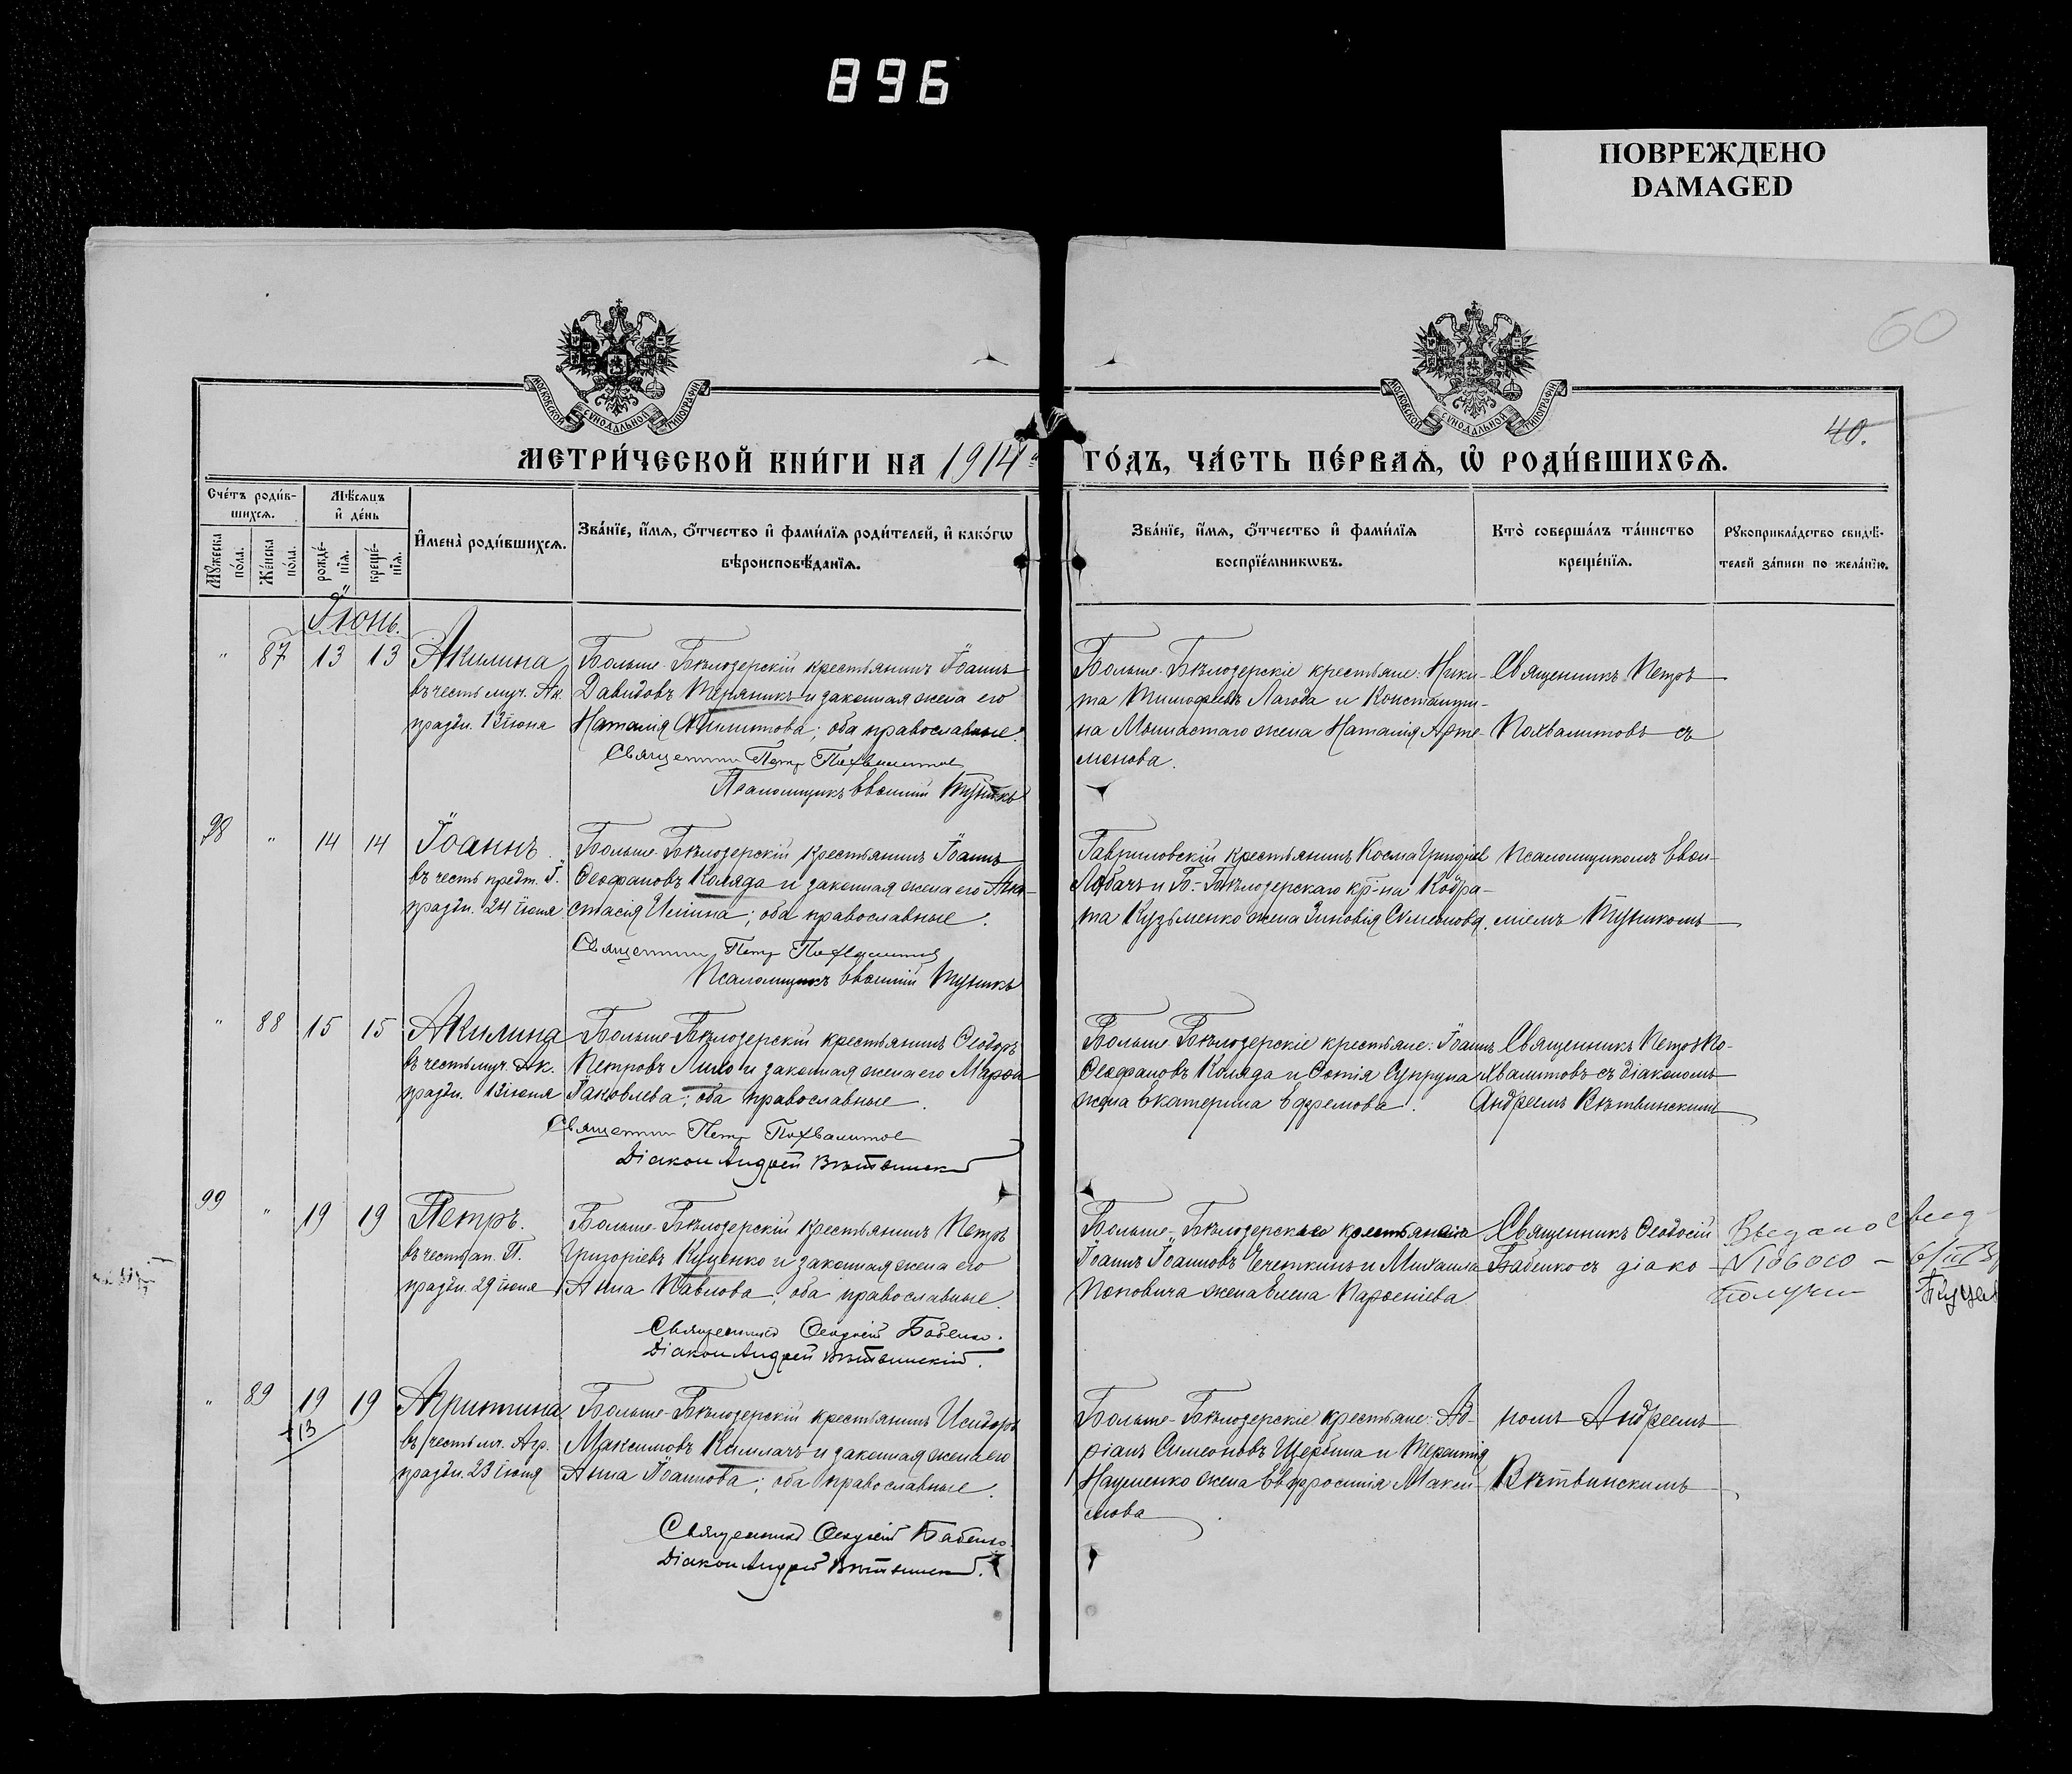 896
ПОВРЕЖДЕНО
DAMAGED
60
40.
МОСКОВСКОЙ СУНОДАЛЬНОЙ ТИПОГРАФІИ
МОСКОВСКОЙ СУНОДАЛЬНОЙ ТИПОГРАФІИ
МЕТРИ́ЧЕСКОЙ КНИ́ГИ НА 1914
ГО́ДЪ, ЧА́СТЬ ПЕ́РВАѦ, Ѡ҆ РОДИ́ВШИХСѦ.
Сче́тъ роди́в-
шихсѧ.
Мѣ́сѧцъ
и҆ де́нь
Мꙋ́жеска по́ла.
Же́нска по́ла.
рожде́-нїѧ.
креще́-нїѧ.
И҆мена̀ роди́вшихсѧ.
Зва́нїе, и҆́мѧ, ѻ҆́тчество и҆ фами́лїѧ роди́телей, и҆ како́гѡ
вѣроисповѣ́данїѧ.
Зва́нїе, и҆́мѧ, ѻ҆́тчество и҆ фами́лїѧ
воспрїе́мникѡвъ.
Кто̀ соверша́лъ та́инство
креще́нїѧ.
Рꙋкоприкла́дство свидѣ́-
телей за́писи по жела́нїю.
Іюнь.
" 87 13 13 Акилина
въ честь муч. Ак.
праздн. 13 іюня
Больше-Бѣлозерскій крестьянинъ Іоаннъ
Давидовъ и законная жена его
Наталія Филиппова; оба православные.
Священник Петр Похвалитов
Псаломщикъ Евсти Тупикъ
Больше-Бѣлозерскіе крестьяне: Ники-
та Тимофеевъ Лагода и Константи-
на жена Наталія Арте-
монова.
Священникъ Петръ
Похвалитовъ съ
98 " 14 14 Іоаннъ
въ честь предт. І.
праздн. 24 іюня
Больше-Бѣлозерскій крестьянинъ Іоаннъ
Ѳеофановъ Коляда и законная жена его Ана-
стасія Ильина; оба православные.
Священник Петр Похвалитов
Псаломщикъ Тупикъ
Гавриловскій крестьянинъ Косма
Лобачъ и Б.-Бѣлозерскаго кр-на Кодра-
та Кузьменко жена Зиновія Симеонова.
Псаломщикомъ
Тупикомъ
" 88 15 15 Акилина
въ честь муч. Ак.
праздн. 13 іюня
Больше-Бѣлозерскій крестьянинъ Ѳеодоръ
Петровъ и законная жена его Марѳа
Іаковлева; оба православные.
Священник Петр Похвалитов
Діакон Андрей Вѣтвинский
Больше-Бѣлозерскіе крестьяне: Іоаннъ
Ѳеофановъ Коляда и Супруна
жена Екатерина Ефремова.
Священникъ Петръ По-
хвалитовъ съ діакономъ
Андреемъ Вѣтвинскимъ
99 " 19 19 Петръ.
въ честь ап. П.
праздн. 29 іюня
Больше-Бѣлозерскій крестьянинъ Петръ
Григоріевъ Куценко и законная жена его
Анна Павлова; оба православные.
Священникъ Ѳеодосій Бабенко.
Діакон Андрей Вѣтвинскій.
Больше-Бѣлозерскіе крестьяне
Іоаннъ Іоанновъ Чечеткинъ и Михаила
Поповича жена Елена Парѳеніева.
Священникъ Ѳеодосій
Бабенко съ діако-
Выдано свед
N 106010
получи
" 89 19 19 Агриппина
+13
въ честь мч. Агр.
праздн. 23 іюня
Больше-Бѣлозерскій крестьянинъ Исидоръ
Максимовъ и законная жена его
Анна Іоаннова; оба православные.
Священникъ Ѳеодосій Бабенко.
Діакон Андрей Вѣтвинскій.
Больше-Бѣлозерскіе крестьяне: Ад-
ріанъ Симеоновъ Щербина и Терентія
Науменко жена Евфросинія Макси-
мова
номъ Андреемъ
Вѣтвинскимъ